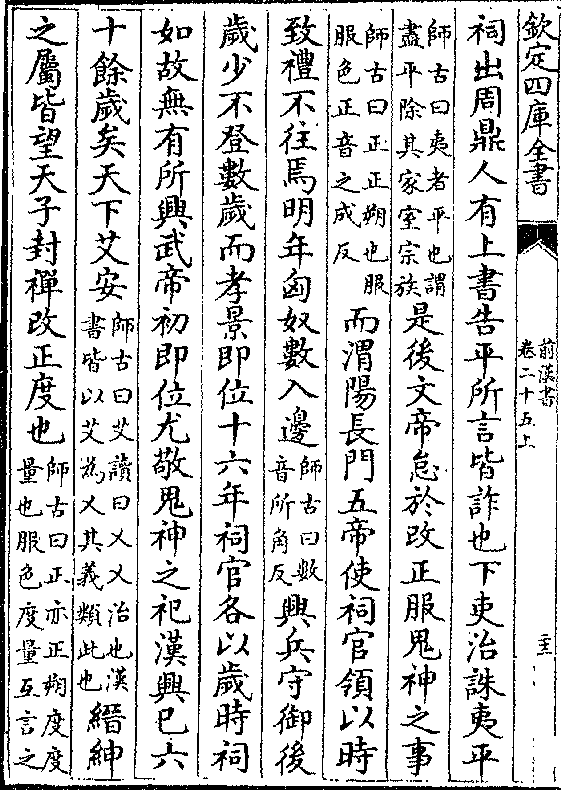 欽定四庫全書
前漢書
卷二十五上
祠出周鼎人有上書告平所言皆詐也下吏治誅夷平
師古曰夷者平也謂
盡平除其家室宗族
是後文帝怠於改正服鬼神之事
師古曰正正朔也服
服色正音之成反
而渭陽長門五帝使祠官領以時
致禮不往焉明年匈奴數入邊
師古曰數
音所角反
興兵守御後
歲少不登數歲而孝景即位十六年祠官各以歲時祠
如故無有所興武帝初即位尤敬鬼神之祀漢興已六
十餘歲矣天下艾安
師古曰艾讀曰乂乂治也漢
書皆以艾爲乂其義類此也
縉紳
之屬皆望天子封禪改正度也
師古曰正亦正朔度度
量也服色度量互言之